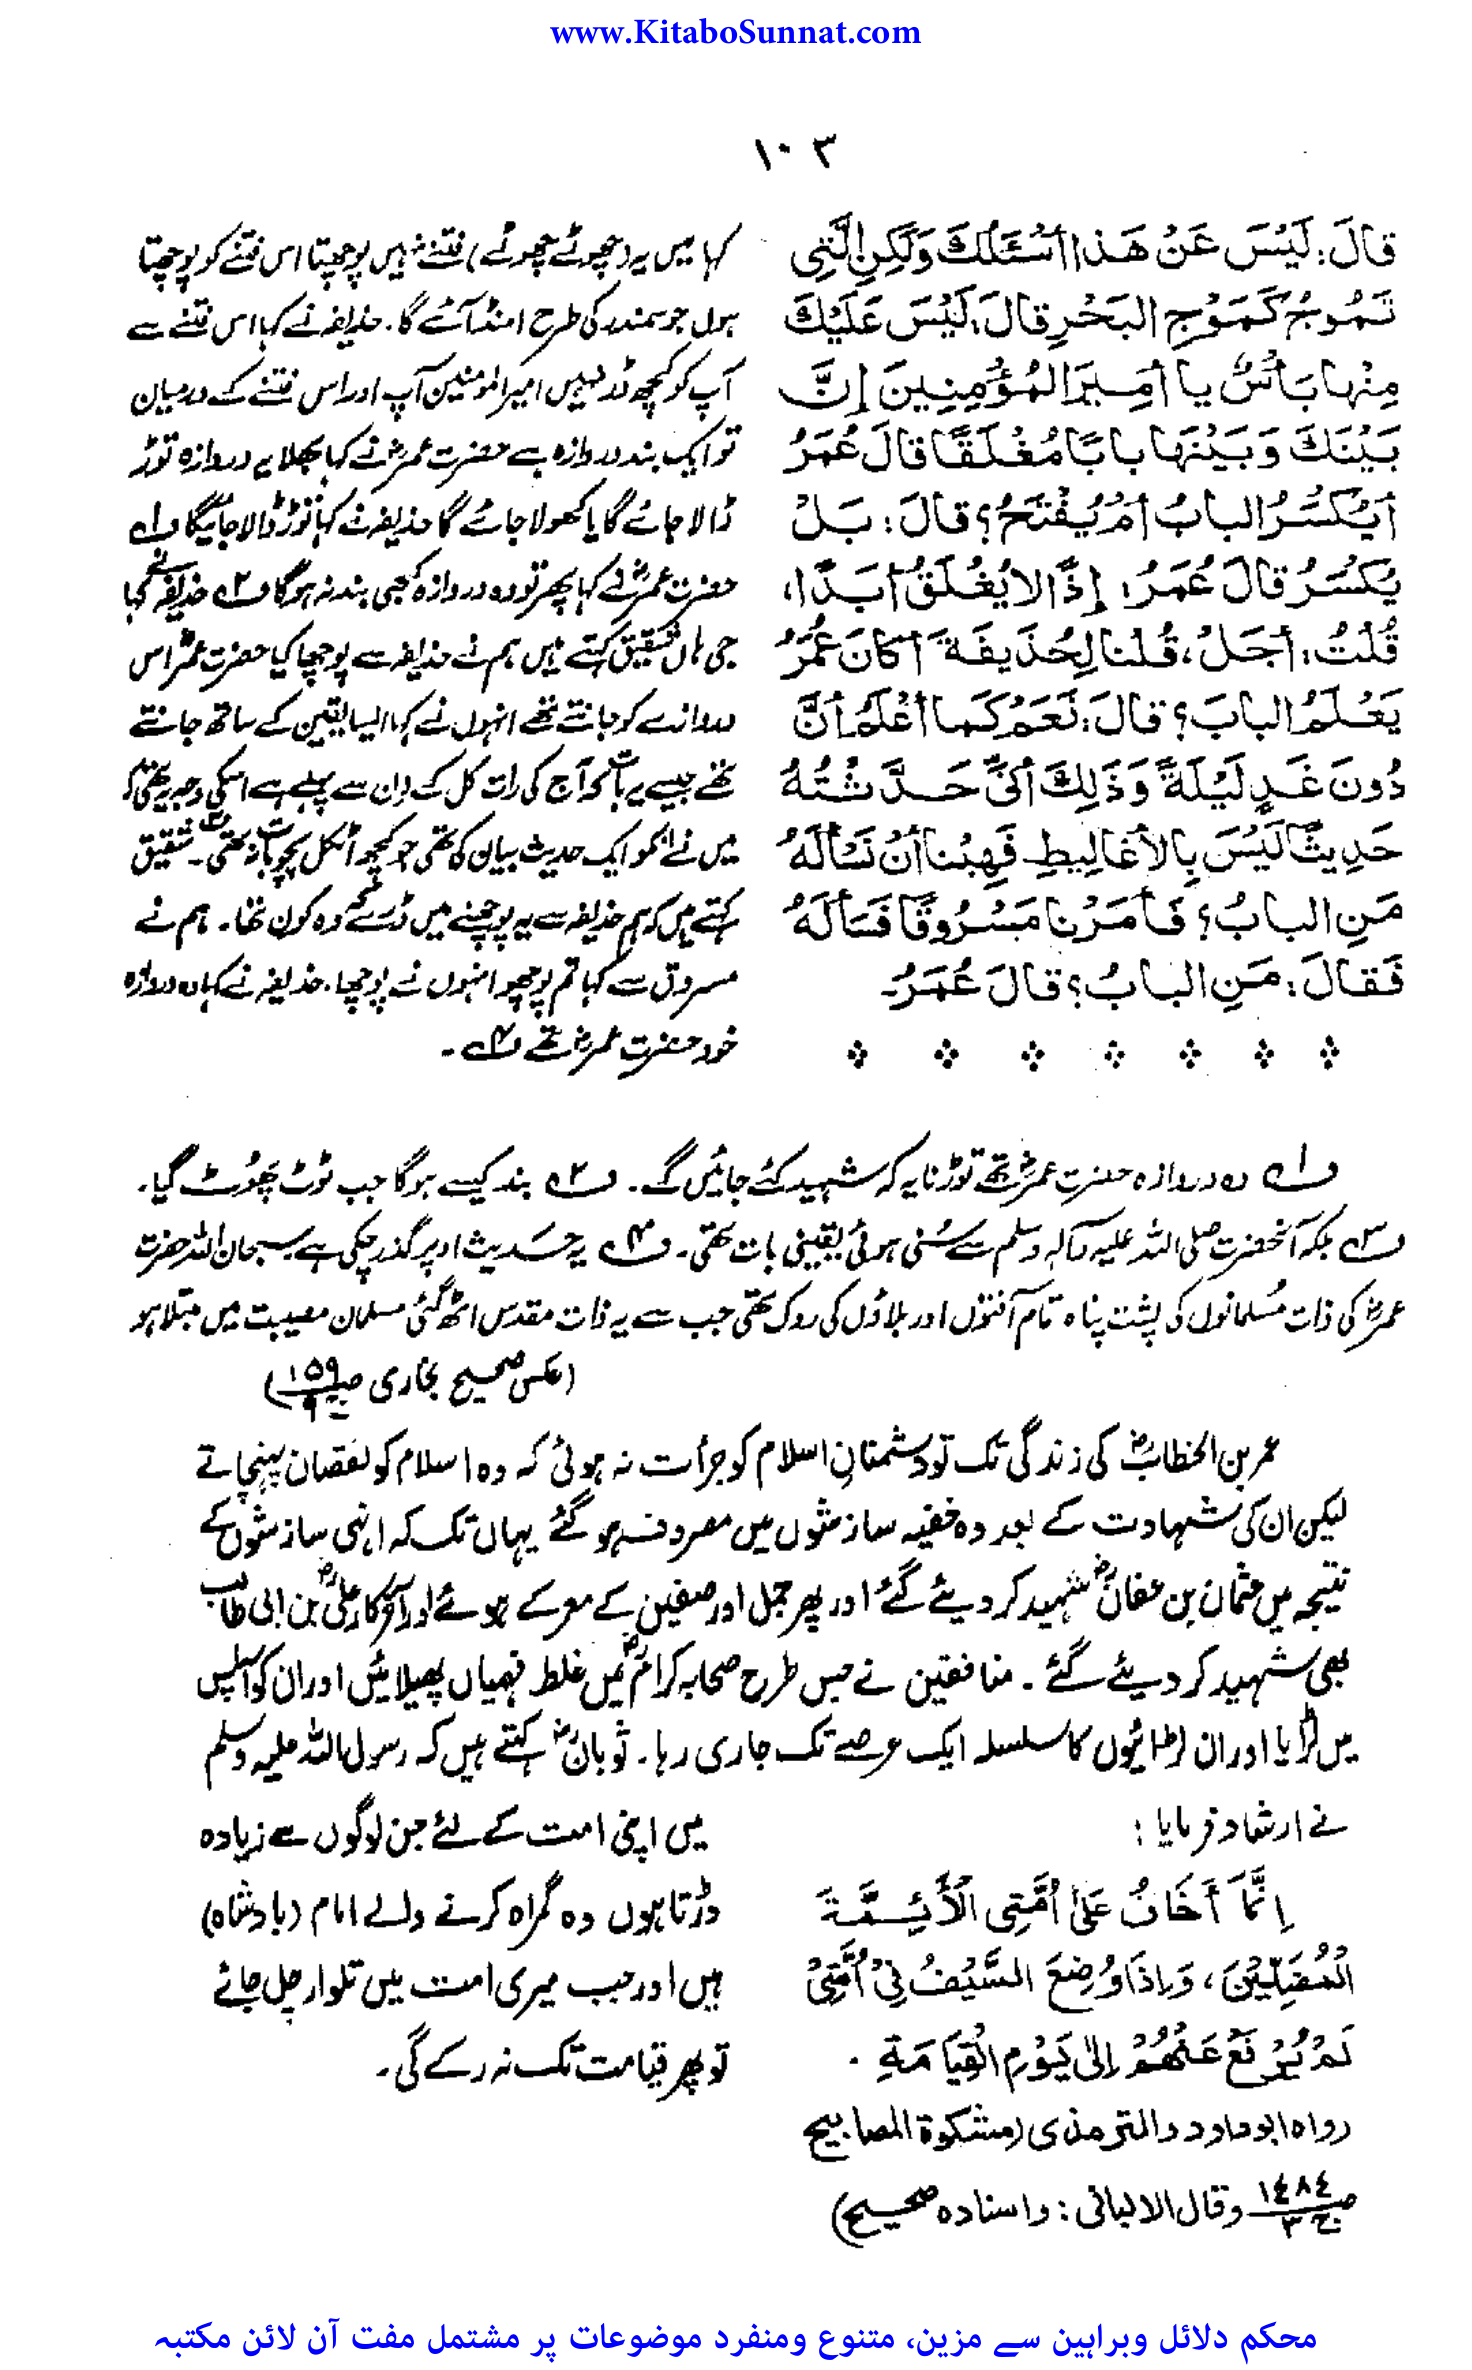 www.KitaboSunnat.com
۱۰۳
قالَ: لَيْسَ عَنْ هَذا أسْئَلُكَ وَلَكِنِ الَّتِي
تَمُوجُ كَمَوْجِ البَحْرِ قالَ، لَيْسَ عَلَيْكَ
مِنْها بَأسٌ يا أمِيرَ المُؤْمِنِينَ إنَّ
بَيْنَكَ وَبَيْنَها بابًا مُغْلَقًا قالَ عُمَرُ
أيُكْسَرُ البابُ أمْ يُفْتَحُ؟ قالَ: بَلْ
يُكْسَرُ قالَ عُمَرُ: إذًا لا يُغْلَقُ أبَدًا،
قُلْتُ: أجَلْ، قُلْنا لِحُذَيفَةَ أكانَ عُمَرُ
يَعْلَمُ البابَ؟ قالَ: نَعَمْ كَما أعْلَمُ أنَّ
دُونَ غَدٍ لَيْلَةً وَذَلِكَ أنّي حَدَّثْتُهُ
حَدِيثًا لَيْسَ بِالأغالِيطِ فَهِبْنا أنْ نَسْألَهُ
مَنِ البابُ؟ فَأمَرْنا مَسْرُوقًا فَسَألَهُ
فَقالَ: مَنِ البابُ؟ قالَ عُمَرُ۔
کہا میں یہ (چھوٹے چھوٹے) فتنے نہیں پوچھتا اس فتنے کو پوچھتا
ہوں جو سمندر کی طرح امنڈ آئے گا۔ حذیفہ نے کہا اس فتنے سے
آپ کو کچھ ڈر نہیں امیر المومنین آپ اور اس فتنے کے درمیان
تو ایک بند دروازہ ہے حضرت عمرؓ نے کہا بھلا یہ دروازہ توڑ
ڈالا جائے گا یا کھولا جائے گا حذیفہ نے کہا توڑ ڈالا جائیگا ف۱
حضرت عمرؓ نے کہا پھر تو وہ دروازہ کبھی بند نہ ہوگا ف۲ حذیفہ نے کہا
جی ہاں شقیق کہتے ہیں ہم نے حذیفہ سے پوچھا کیا حضرت عمرؓ اس
دروازے کو جانتے تھے انہوں نے کہا ایسا یقین کے ساتھ جانتے
تھے جیسے یہ بات کہ آج کی رات کل کے دن سے پہلے ہے اسکی وجہ یہ تھی کہ
میں نے انکو ایک حدیث بیان کی تھی جو کچھ اٹکل پچو بات نہ تھی ف۳۔ شقیق
کہتے ہیں کہ ہم حذیفہ سے یہ پوچھنے میں ڈر گئے وہ کون تھا۔ ہم نے
مسروق سے کہا تم پوچھو انہوں نے پوچھا۔ حذیفہ نے کہا وہ دروازہ
خود حضرت عمرؓ تھے ف۴۔
ف۱ وہ دروازہ حضرت عمرؓ تھے توڑنا یہ کہ شہید کئے جائیں گے۔ ف۲ بند کیسے ہوگا جب ٹوٹ پھوٹ گیا۔
ف۳ بلکہ آنحضرت صلی اللہ علیہ وآلہ وسلم سے سُنی ہوئی یقینی بات تھی۔ ف۴ یہ حدیث اوپر گذر چکی ہے سبحان اللہ حضرت
عمرؓ کی ذات مُسلمانوں کی پشت پناہ تمام آفتوں اور بلاؤں کی روک تھی جب سے یہ ذات مقدس اٹھ گئی مسلمان مصیبت میں مبتلا ہو
(عکس صحیح بخاری ص۱۵۹ ج۹)
عمر بن الخطابؓ کی زندگی تک تو دشمنانِ اسلام کو جرأت نہ ہوئی کہ وہ اسلام کو نقصان پہنچاتے
لیکن ان کی شہادت کے بعد وہ خفیہ سازشوں میں مصروف ہو گئے یہاں تک کہ انہی سازشوں کے
نتیجہ میں عثمان بن عفانؓ شہید کر دیئے گئے اور پھر جمل اور صفین کے معرکے ہوئے اور آخر کار علیؓ بن ابی طالب
بھی شہید کر دیئے گئے۔ منافقین نے جس طرح صحابہ کرامؓ میں غلط فہمیاں پھیلائیں اور ان کو آپس
میں لڑایا اور ان لڑائیوں کا سلسلہ ایک عرصے تک جاری رہا۔ ثوبانؓ کہتے ہیں کہ رسول اللہ صلی اللہ علیہ وسلم
نے ارشاد فرمایا:
إنَّمَا أَخَافُ عَلىٰ أُمَّتِي الْأَئِمَّةَ
الْمُضِلِّيْنَ، وَإِذَا وُضِعَ السَّيْفُ فِيْ أُمَّتِيْ
لَمْ يُرْفَعْ عَنْهُمْ إِلىٰ يَوْمِ الْقِيَامَةِ.
رواه ابو داود والترمذی (مشکوة المصابیح
ص١٤٨٤ ج٣ وقال الالبانی: واسناده صحیح)
میں اپنی امت کے لئے جن لوگوں سے زیادہ
ڈرتا ہوں وہ گمراہ کرنے والے امام (بادشاہ)
ہیں اور جب میری امت میں تلوار چل جائے
تو پھر قیامت تک نہ رکے گی۔
محکم دلائل وبراہین سے مزین، متنوع ومنفرد موضوعات پر مشتمل مفت آن لائن مکتبہ